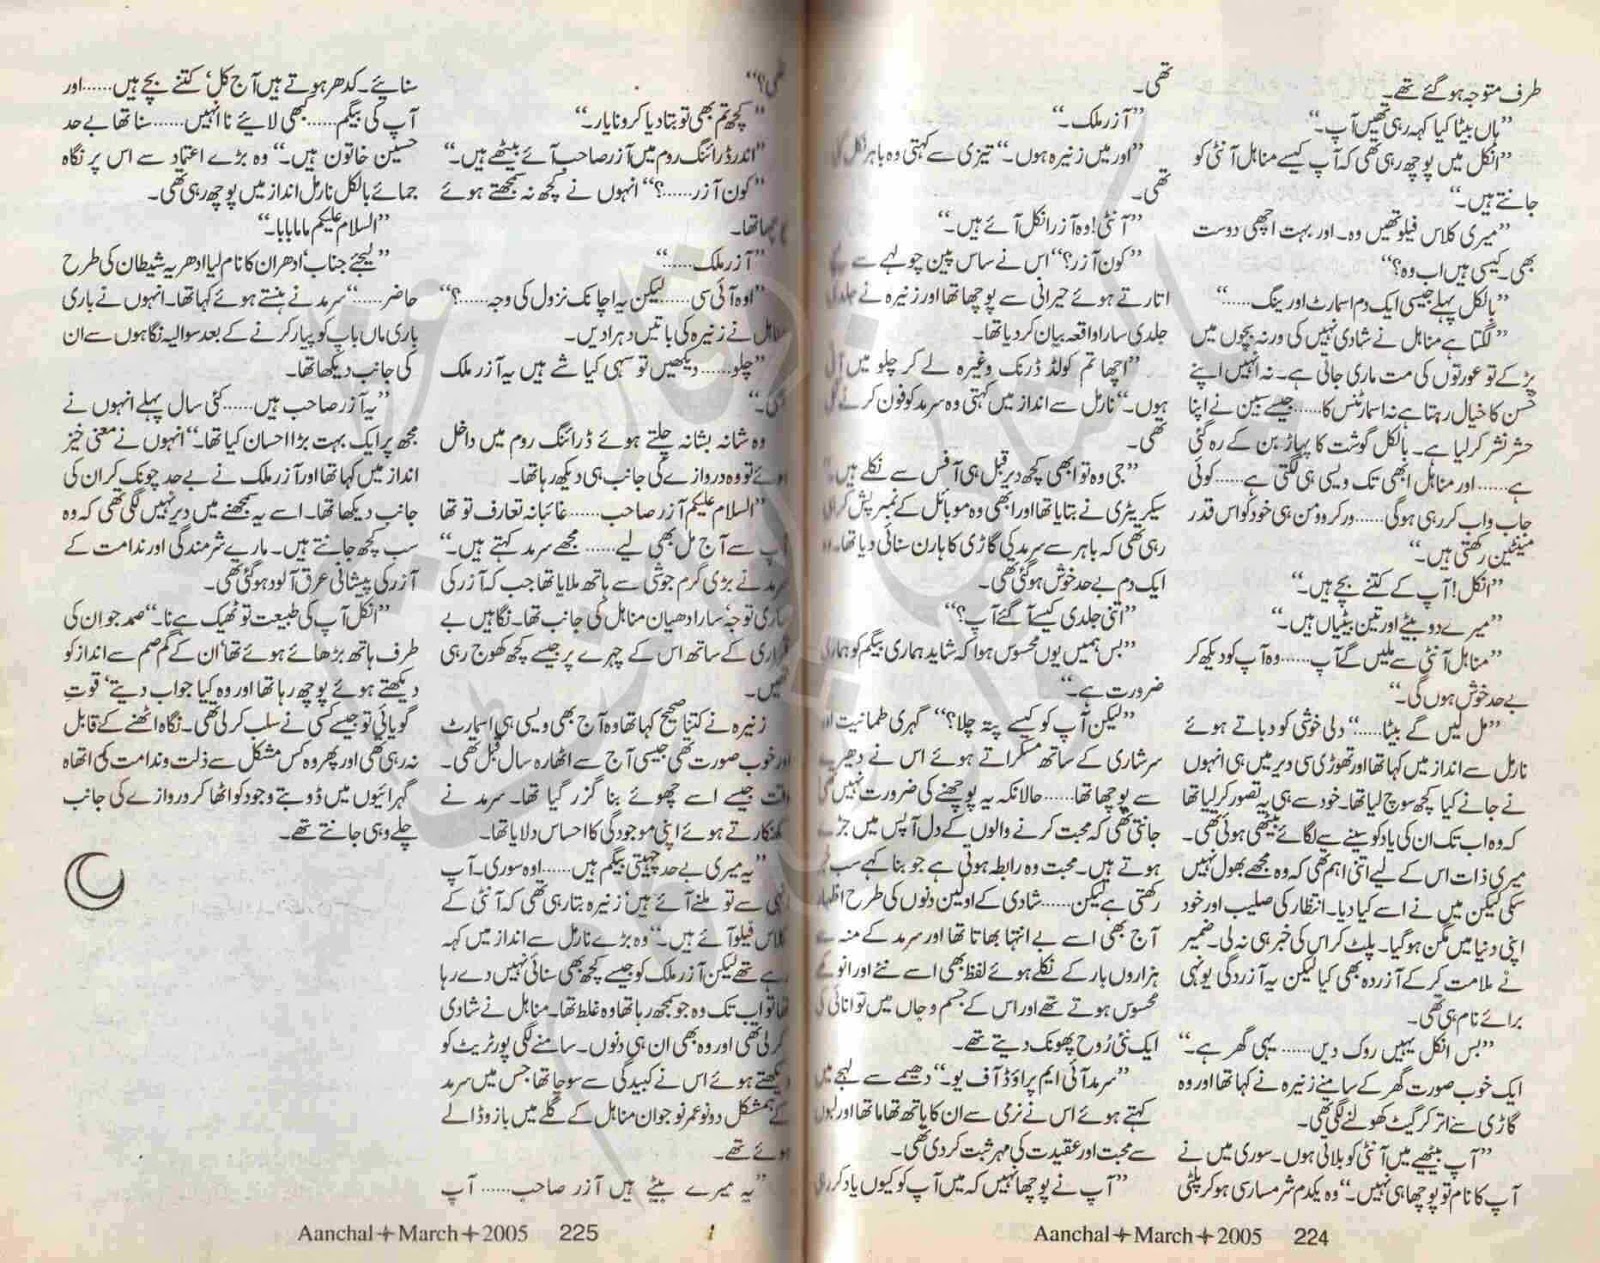 طرف متوجہ ہوگئے تھے۔
”ہاں بیٹا کیا کہہ رہی تھیں آپ۔“
”انکل میں پوچھ رہی تھی کہ آپ کیسے مناہل آنٹی کو
جانتے ہیں۔“
”میری کلاس فیلو تھیں وہ۔ اور بہت اچھی دوست
بھی۔ کیسی ہیں اب وہ؟“
”بالکل پہلے جیسی ایک دم اسمارٹ اور ینگ......“
”لگتا ہے مناہل نے شادی نہیں کی ورنہ بچوں میں
پڑ کے تو عورتوں کی مت ماری جاتی ہے۔ نہ انہیں اپنے
حسن کا خیال رہتا ہے نہ اسمارٹنس کا...... جیسے سبین نے اپنا
حشر نشر کرلیا ہے۔ بالکل گوشت کا پہاڑ بن کے رہ گئی
ہے...... اور مناہل ابھی تک ویسی ہی لگتی ہے...... کوئی
جاب واب کررہی ہوگی...... ورکرو ومن ہی خود کو اس قدر
مینٹین رکھتی ہیں۔“
”انکل! آپ کے کتنے بچے ہیں۔“
”میرے دو بیٹے اور تین بیٹیاں ہیں۔“
”مناہل آنٹی سے ملیں گے آپ...... وہ آپ کو دیکھ کر
بے حد خوش ہوں گی۔“
”مل لیں گے بیٹا......“ دلی خوشی کو دباتے ہوئے
نارمل سے انداز میں کہا تھا اور تھوڑی سی دیر میں ہی انہوں
نے جانے کیا کچھ سوچ لیا تھا۔ خود سے ہی یہ تصور کرلیا تھا
کہ وہ اب تک ان کی یاد کو سینے سے لگائے بیٹھی ہوئی تھی۔
میری ذات اس کے لیے اتنی اہم تھی کہ وہ مجھے بھول نہیں
سکی لیکن میں نے اسے کیا دیا۔ انتظار کی صلیب اور خود
اپنی دنیا میں مگن ہوگیا۔ پلٹ کر اس کی خبر ہی نہ لی۔ ضمیر
نے ملامت کرکے آزردہ بھی کیا لیکن یہ آزردگی یونہی
برائے نام ہی تھی۔
”بس انکل یہیں روک دیں...... یہی گھر ہے۔“
ایک خوب صورت گھر کے سامنے زنیرہ نے کہا تھا اور وہ
گاڑی سے اتر کر گیٹ کھولنے لگی تھی۔
”آپ بیٹھیے میں آنٹی کو بلاتی ہوں۔ سوری میں نے
آپ کا نام تو پوچھا ہی نہیں۔“ وہ یکدم شرمساری ہوکر پلٹی
تھی۔
”آزر ملک۔“
”اور میں زنیرہ ہوں۔“ تیزی سے کہتی وہ باہر نکل
تھی۔
”آنٹی! وہ آزر انکل آئے ہیں۔“
”کون آزر؟“ اس نے ساس پین چولہے سے
اتارتے ہوئے حیرانی سے پوچھا تھا اور زنیرہ نے جلدی
جلدی سارا واقعہ بیان کردیا تھا۔
”اچھا تم کولڈ ڈرنک وغیرہ لے کر چلو میں آتی
ہوں۔“ نارمل سے انداز میں کہتی وہ سرمد کو فون کرنے
تھی۔
”جی وہ تو ابھی کچھ دیر قبل ہی آفس سے نکلے ہیں۔“
سیکریٹری نے بتایا تھا اور ابھی وہ موبائل کے نمبر پش
رہی تھی کہ باہر سے سرمد کی گاڑی کا ہارن سنائی دیا تھا۔ وہ
ایک دم بے حد خوش ہوگئی تھی۔
”اتنی جلدی کیسے آگئے آپ؟“
”بس ہمیں یوں محسوس ہوا کہ شاید ہماری بیگم کو ہماری
ضرورت ہے۔“
”لیکن آپ کو کیسے پتہ چلا؟“ گہری طمانیت اور
سرشاری کے ساتھ مسکراتے ہوئے اس نے دھیرے
سے پوچھا تھا...... حالانکہ یہ پوچھنے کی ضرورت نہیں تھی
جانتی تھی کہ محبت کرنے والوں کے دل آپس میں جڑے
ہوتے ہیں۔ محبت وہ رابطہ ہوتی ہے جو بنا کہے سب
رکھتی ہے لیکن...... شادی کے اولین دنوں کی طرح اظہار
آج بھی اسے بے انتہا بھاتا تھا اور سرمد کے منہ سے
ہزاروں بار کے نکلے ہوئے لفظ بھی اسے نئے اور انوکھے
محسوس ہوتے تھے اور اس کے جسم و جاں میں توانائی کی
ایک نئی رُوح پھونک دیتے تھے۔
”سرمد آئی ایم پراؤڈ آف یو۔“ دھیمے سے لہجے میں
کہتے ہوئے اس نے نرمی سے ان کا ہاتھ تھاما تھا اور لبوں
سے محبت اور عقیدت کی مہر ثبت کردی تھی۔
”آپ نے پوچھا نہیں کہ میں آپ کو کیوں یاد کررہی
Aanchal✦March✦2005 224
تھی؟“
”کچھ تم بھی تو بتا دیا کرو نا یار۔“
”اندر ڈرائنگ روم میں آزر صاحب آئے بیٹھے ہیں۔“
”کون آزر......؟“ انہوں نے کچھ نہ سمجھتے ہوئے
پوچھا تھا۔
”آزر ملک......“
”اوہ آئی سی...... لیکن یہ اچانک نزول کی وجہ......؟“
مناہل نے زنیرہ کی باتیں دہرا دیں۔
”چلو...... دیکھیں تو سہی کیا شے ہیں یہ آزر ملک
وہ شانہ بشانہ چلتے ہوئے ڈرائنگ روم میں داخل
ہوئے تو وہ دروازے کی جانب ہی دیکھ رہا تھا۔
”السلام علیکم آزر صاحب...... غائبانہ تعارف تو تھا
آپ سے آج مل بھی لیے...... مجھے سرمد کہتے ہیں۔“
سرمد نے بڑی گرم جوشی سے ہاتھ ملایا تھا جب کہ آزر کی
ساری توجہ‘ سارا دھیان مناہل کی جانب تھا۔ نگاہیں بے
قراری کے ساتھ اس کے چہرے پر جیسے کچھ کھوج رہی
تھیں۔
زنیرہ نے کتنا صحیح کہا تھا وہ آج بھی ویسی ہی اسمارٹ
اور خوب صورت تھی جیسی آج سے اٹھارہ سال قبل تھی۔
وقت جیسے اسے چھوئے بنا گزر گیا تھا۔ سرمد نے
کھنکارتے ہوئے اپنی موجودگی کا احساس دلایا تھا۔
”یہ میری بے حد چہیتی بیگم ہیں...... اوہ سوری۔ آپ
انہی سے تو ملنے آئے ہیں‘ زنیرہ بتا رہی تھی کہ آنٹی کے
کلاس فیلو آئے ہیں۔“ وہ بڑے نارمل سے انداز میں کہہ
رہے تھے لیکن آزر ملک کو جیسے کچھ بھی سنائی نہیں دے رہا
تھا تو اب تک وہ جو سمجھ رہا تھا وہ غلط تھا۔ مناہل نے شادی
کرلی تھی اور وہ بھی ان ہی دنوں۔ سامنے لگی پورٹریٹ کو
دیکھتے ہوئے اس نے کبیدگی سے سوچا تھا جس میں سرمد
کے ہمشکل دو نوعمر نوجوان مناہل کے گلے میں بازو ڈالے
ہوئے تھے۔
”یہ میرے بیٹے ہیں آزر صاحب...... آپ
سنائیے۔ کدھر ہوتے ہیں آج کل‘ کتنے بچے ہیں...... اور
آپ کی بیگم...... کبھی لائیے نا انہیں...... سنا تھا بے حد
حسین خاتون ہیں۔“ وہ بڑے اعتماد سے اس پر نگاہ
جمائے بالکل نارمل انداز میں پوچھ رہی تھی۔
”السلام علیکم ماما بابا۔“
”لیجئے جناب‘ ادھر ان کا نام لیا ادھر یہ شیطان کی طرح
حاضر......“ سرمد نے ہنستے ہوئے کہا تھا۔ انہوں نے باری
باری ماں باپ کو پیار کرنے کے بعد سوالیہ نگاہوں سے ان
کی جانب دیکھا تھا۔
”یہ آزر صاحب ہیں...... کئی سال پہلے انہوں نے
مجھ پر ایک بہت بڑا احسان کیا تھا۔“ انہوں نے معنی خیز
انداز میں کہا تھا اور آزر ملک نے بے حد چونک کر ان کی
جانب دیکھا تھا۔ اسے یہ سمجھنے میں دیر نہیں لگی تھی کہ وہ
سب کچھ جانتے ہیں۔ مارے شرمندگی اور ندامت کے
آزر کی پیشانی عرق آلود ہوگئی تھی۔
”انکل آپ کی طبیعت تو ٹھیک ہے نا۔“ صمد جو ان کی
طرف ہاتھ بڑھائے ہوئے تھا‘ ان کے گم صم سے انداز کو
دیکھتے ہوئے پوچھ رہا تھا اور وہ کیا جواب دیتے‘ قوتِ
گویائی تو جیسے کسی نے سلب کرلی تھی۔ نگاہ اٹھنے کے قابل
نہ رہی تھی اور پھر وہ کس مشکل سے ذلت و ندامت کی اتھاہ
گہرائیوں میں ڈوبتے وجود کو اٹھا کر دروازے کی جانب
چلے وہی جانتے تھے۔
Aanchal✦March✦2005 225